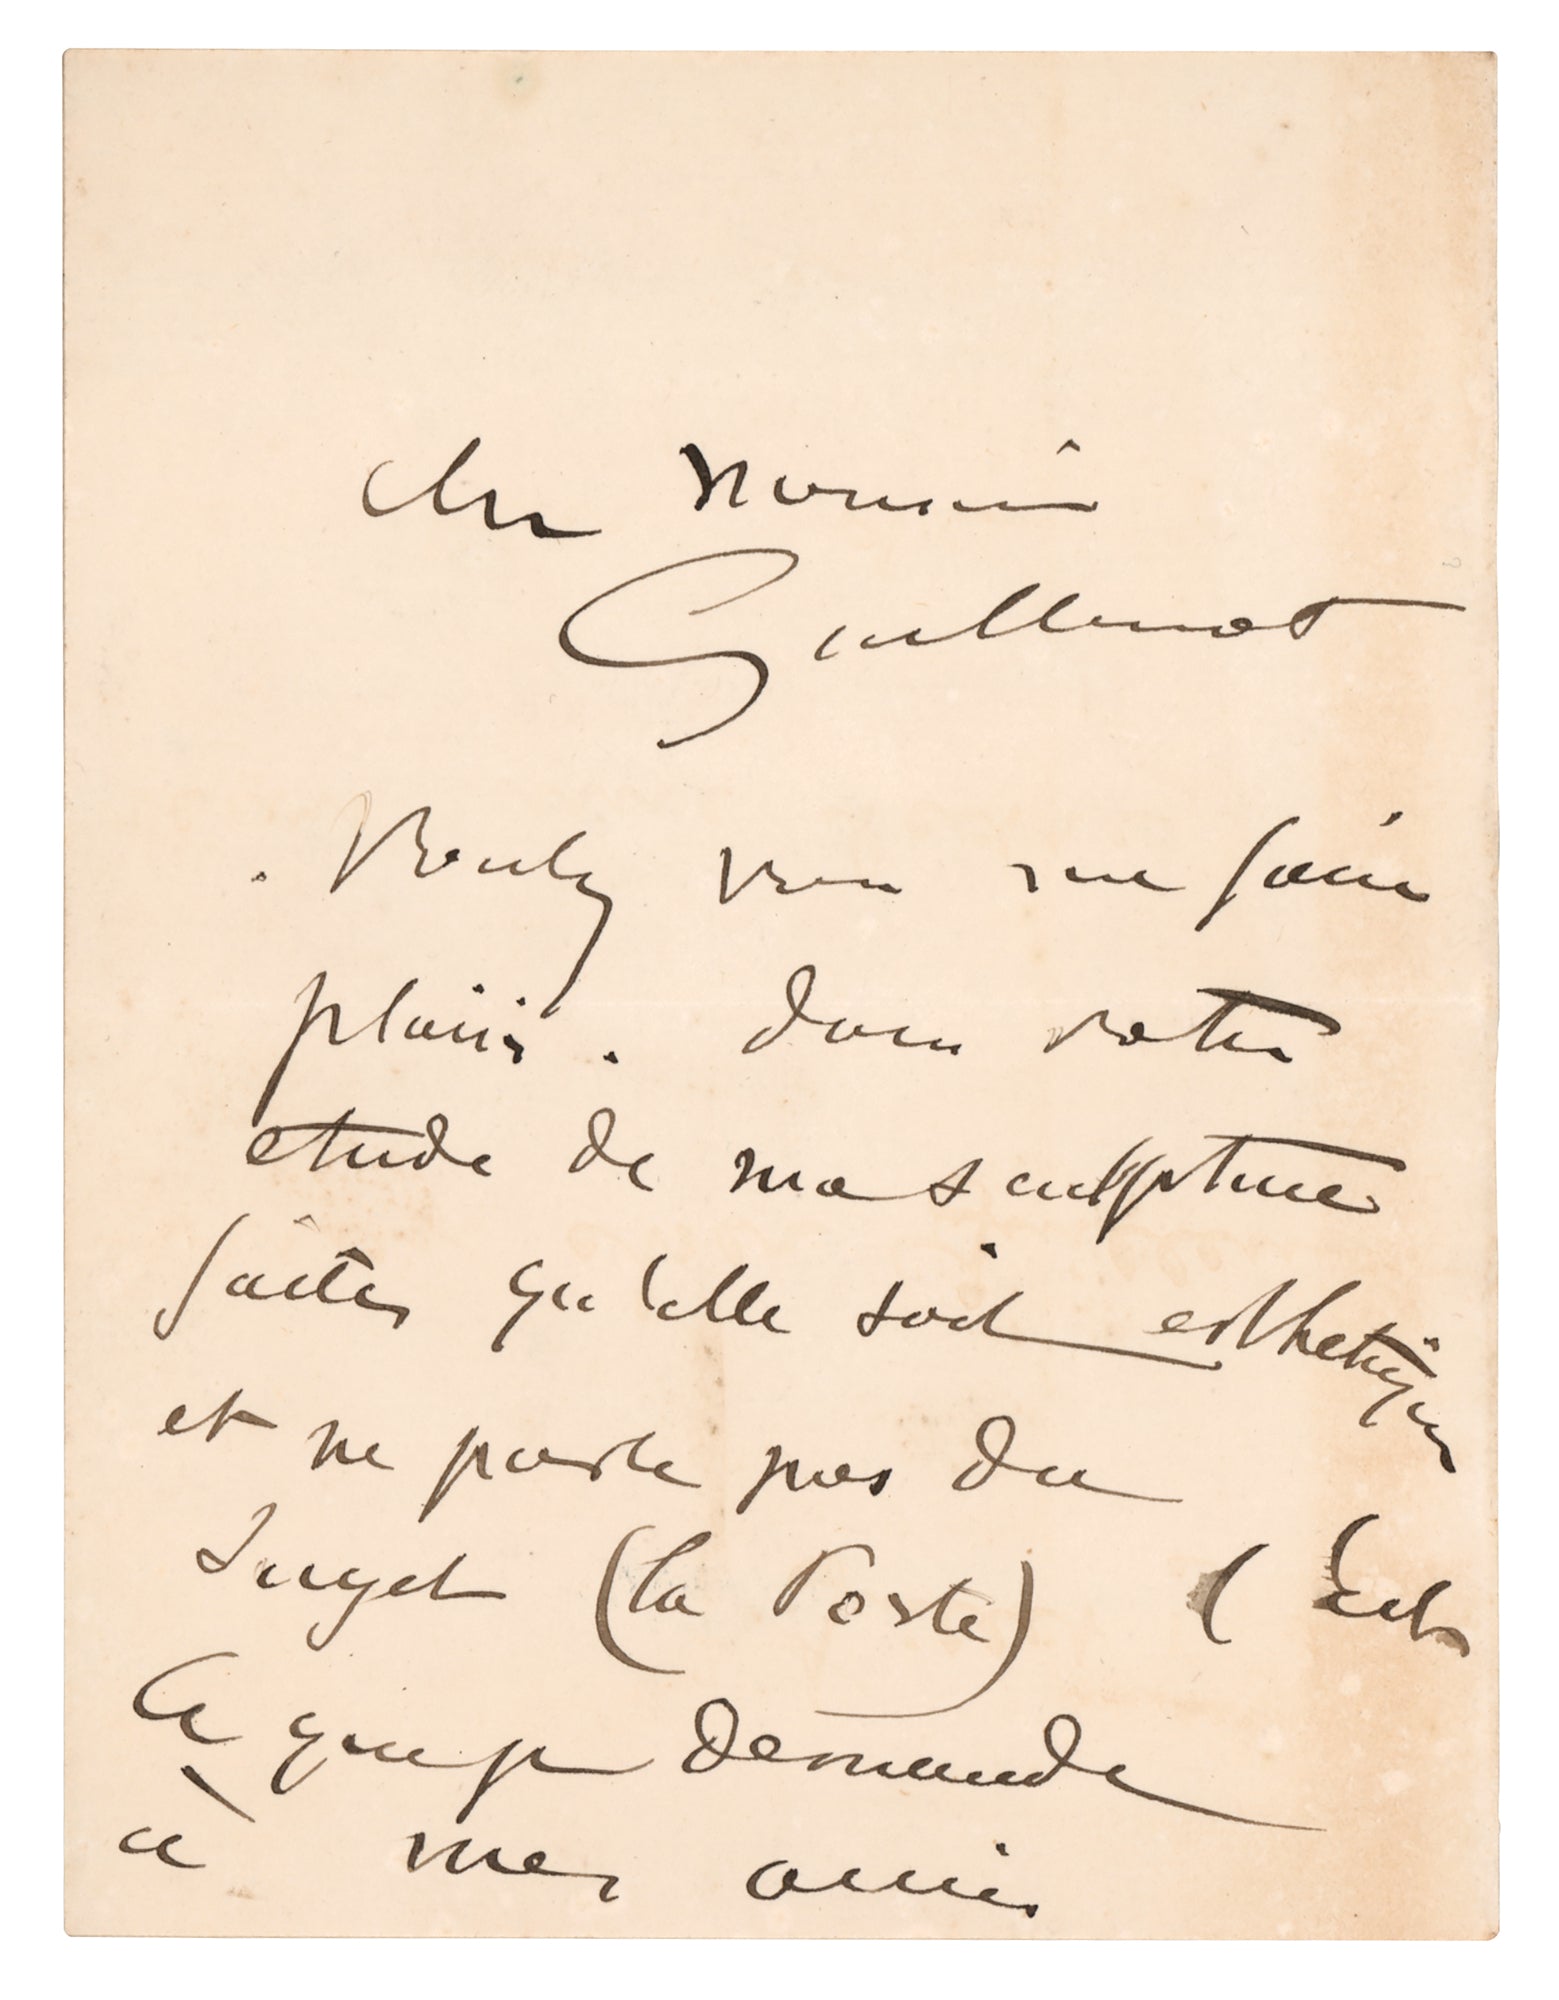 cher Monsieur
Guillemot
. Voulez vous me faire
plaisir . dans votre
etude de ma sculpture
faites qu'elle soit esthetique
et ne parle pas du
sujet (la Porte) C'est
ce que je demande
à mes amis